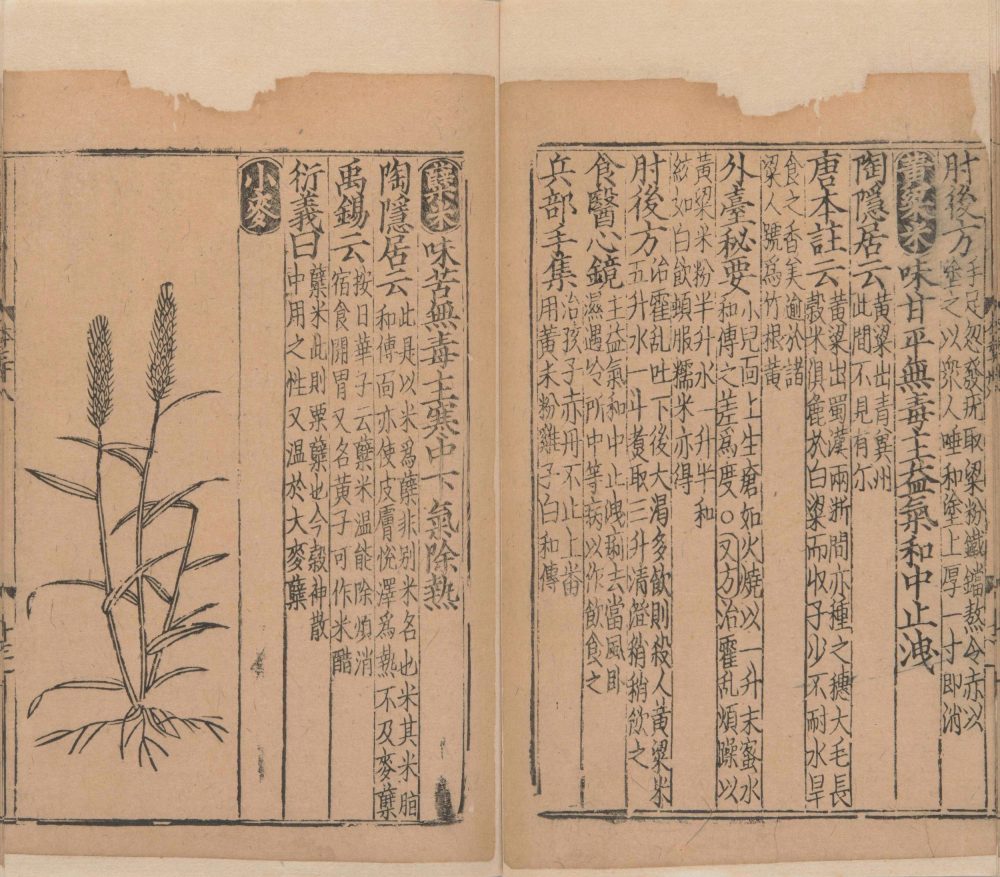 肘後方
手足忽發疣取梁粉鐵鐺熬令赤以
塗之以衆人唾和塗上厚一寸即消
黃梁米味甘平無毒主益氣和中止洩
陶隱居云
黃梁出青冀州
此間不見有尔
唐本註云
黃梁出蜀漢兩浙間亦種之穗大毛長
穀米俱麁於白梁而收子少不耐水旱
食之香美逾於諸
梁人號爲竹根黃
外臺秘要
小兒面上生瘡如火燒以一升末蜜水
和傅之差爲度○又方治霍乱煩躁以
黃梁米粉半升水一升半和
絞如白飲頓服糯米亦得
肘後方
治霍乱吐下後大渴多飲則殺人黃梁米
五升水一斗煑取三升清澄稍稍飲之
食醫心鏡
主益氣和中止洩痢去當風卧
濕遇冷所中等病以作飲食之
兵部手集
治孩子赤丹不止土番
用黃米粉雞子白和傅
糵米味苦無毒主寒中下氣除熱
陶隱居云
此是以米爲糵非别米名也米其米脂
和傅面亦使皮膚悅澤爲熱不及麥糵
禹錫云
按日華子云糵米温能除煩消
宿食開胃又名黃子可作米醋
衍義曰
糵米此則粟糵也今穀神散
中用之性又温於大麥糵
小麥